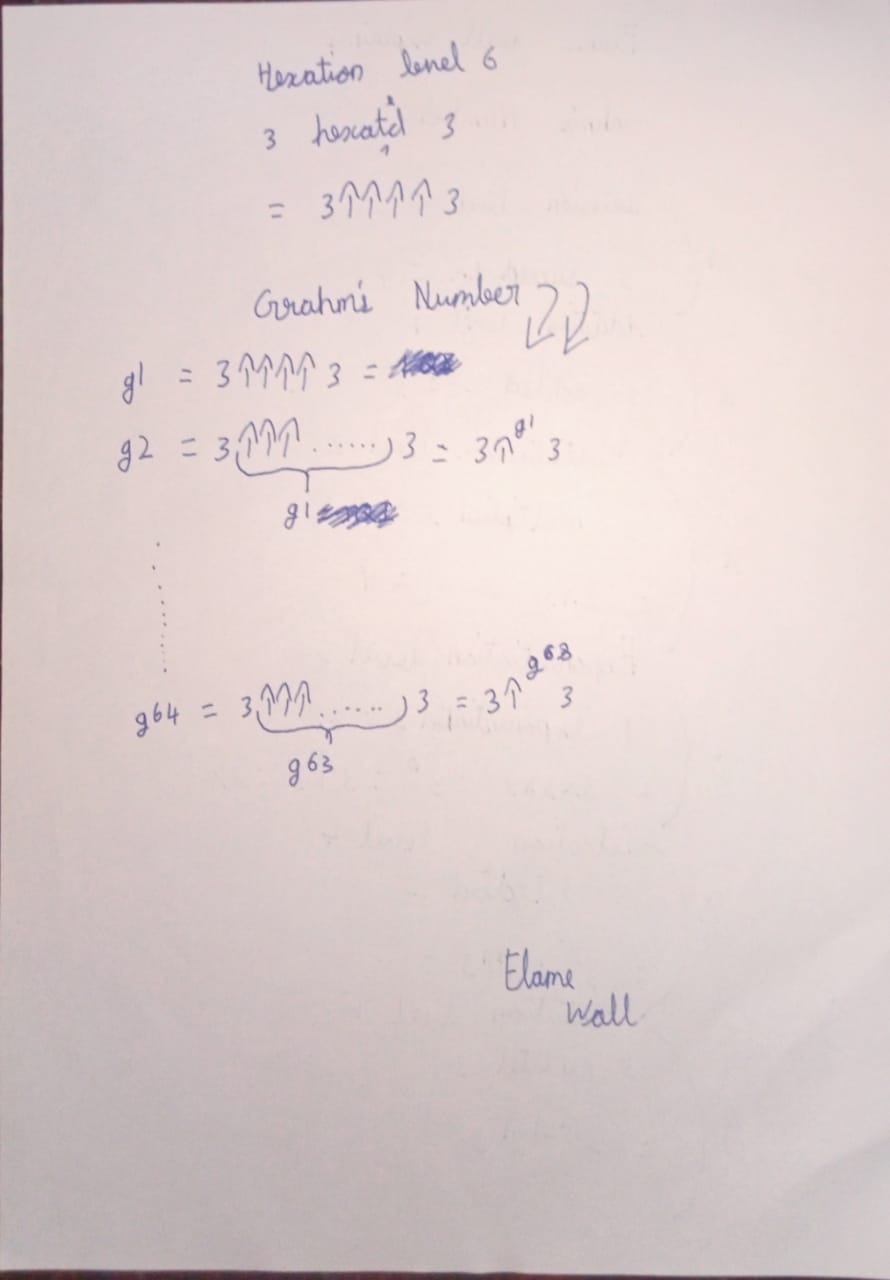 Hexation level 6
3 hexated 3
= 3↑↑↑↑3
Grahm's Number
g1 = 3↑↑↑↑3 =
g2 = 3↑↑↑......3 = 3↑^g1 3
g1
g64 = 3↑↑↑......3 = 3↑^g63 3
g63
Elame
Wall